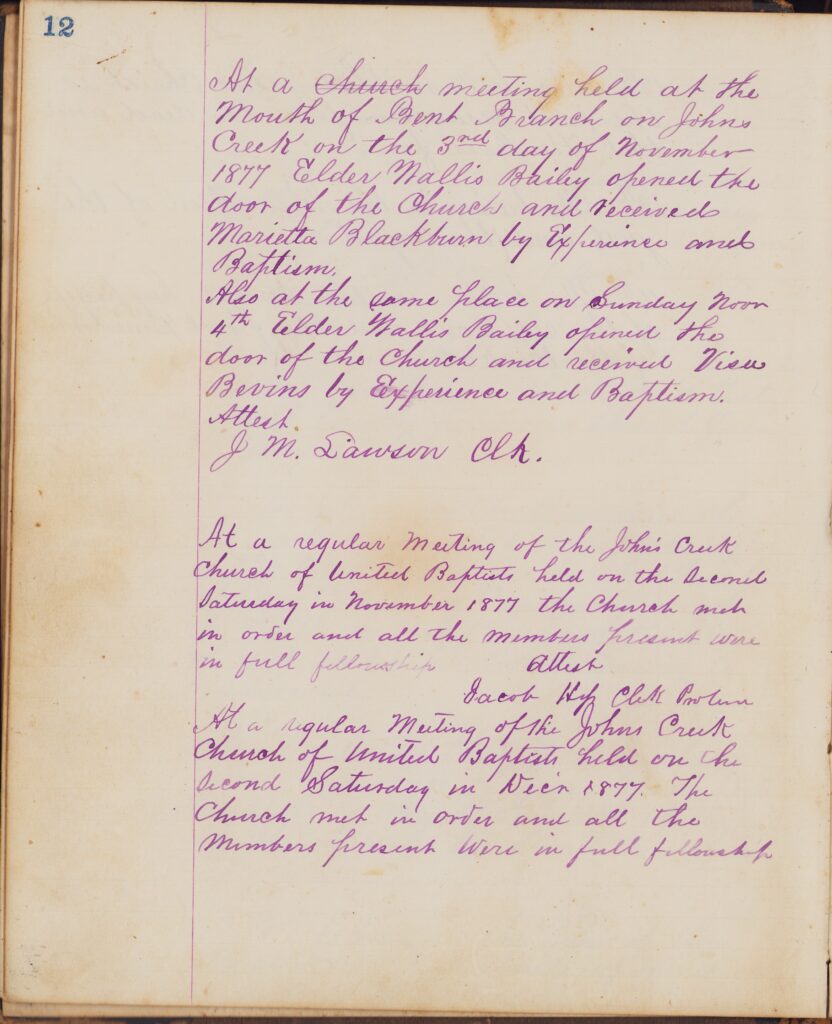 12
At a church meeting held at the
Mouth of Bent Branch on Johns
Creek on the 3rd day of November
1877 Elder Wallis Bailey opened the
door of the Church and received
Marietta Blackburn by Experience and
Baptism.
Also at the same place on Sunday Novr
4th Elder Wallis Bailey opened the
door of the Church and received Visa
Bevins by Experience and Baptism.
Attest.
J M. Lawson Clk.
At a regular Meeting of the John's Creek
Church of United Baptists held on the Second
Saturday in November 1877 the Church met
in order and all the members present were
in full fellowship Attest
Jacob Clek Protem
At a regular Meeting of the Johns Creek
Church of United Baptists held on the
Second Saturday in Decr 1877. The
Church met in order and all the
Members present Were in full fellowship